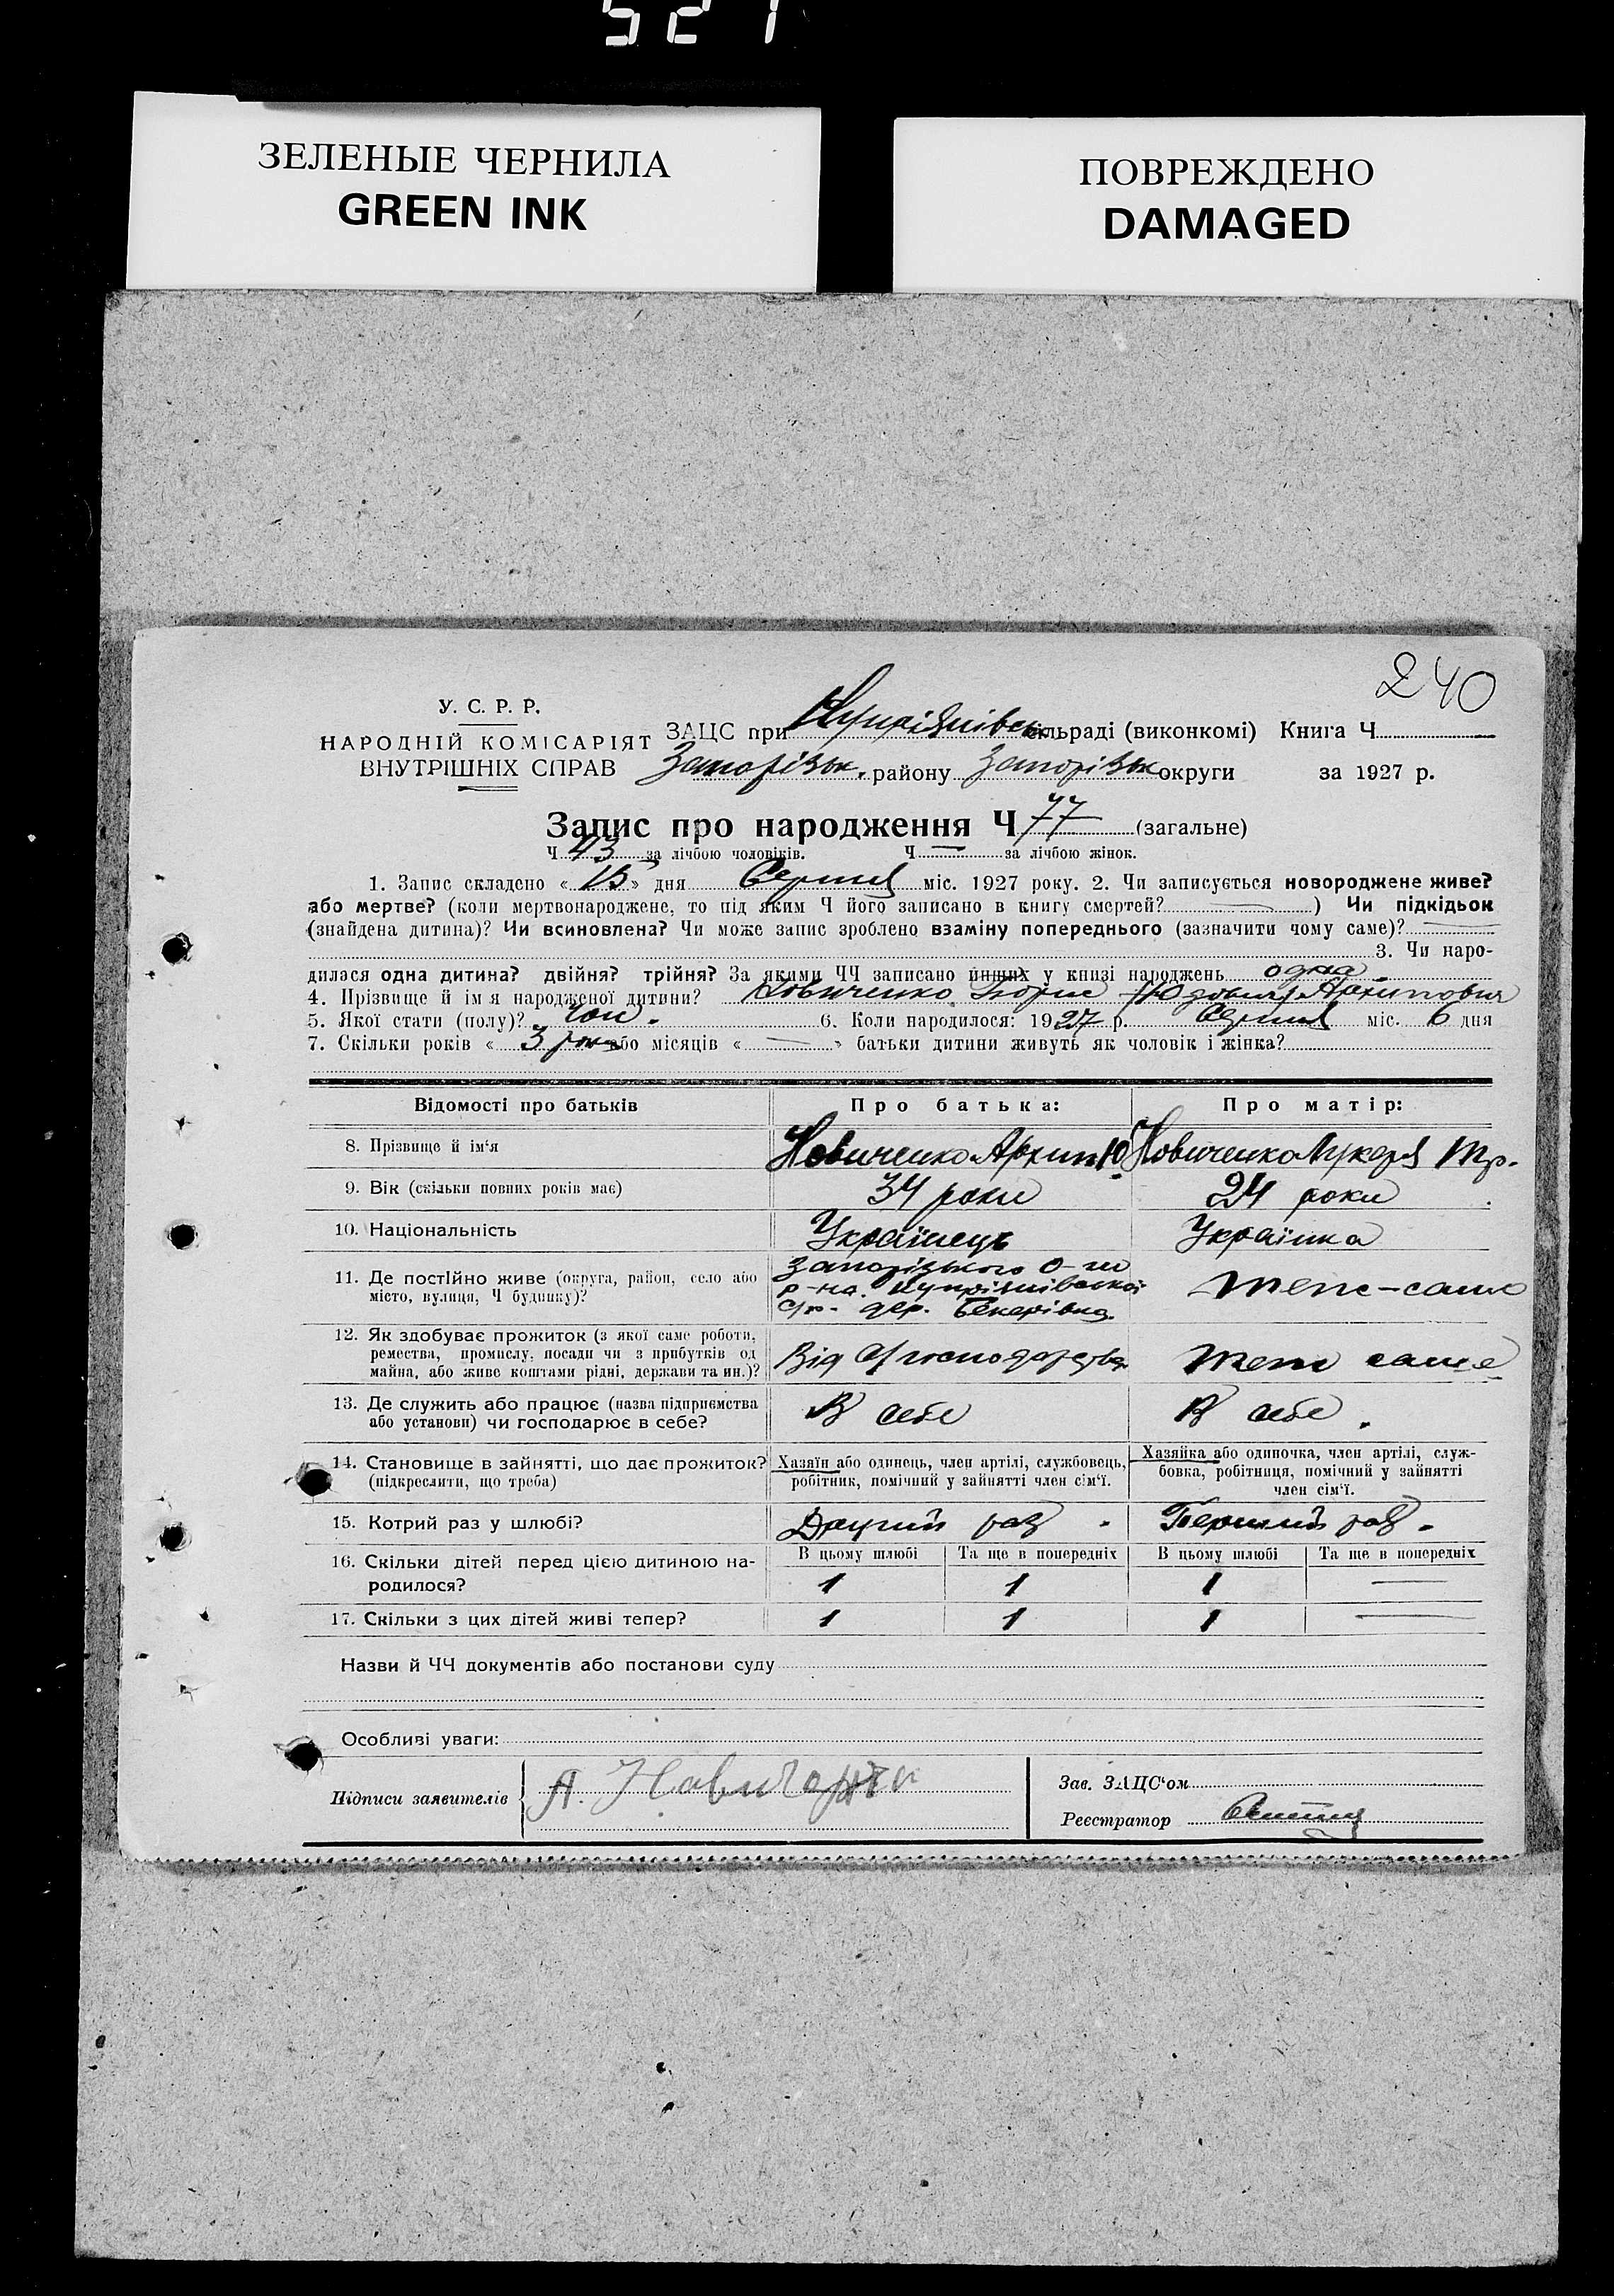 521
ЗЕЛЕНЫЕ ЧЕРНИЛА
GREEN INK
ПОВРЕЖДЕНО
DAMAGED
240
У. С. Р. Р.
НАРОДНІЙ КОМІСАРІЯТ
ВНУТРІШНІХ СПРАВ
ЗАЦС при Купріянівськ сільраді (виконкомі) Книга Ч
Запорізьк. району Запорізьк округи за 1927 р.
Запис про народження Ч 77 (загальне)
Ч 43 за лічбою чоловіків. Ч — за лічбою жінок.
1. Запис складено « » дня Серпня міс. 1927 року. 2. Чи записується новороджене живе?
або мертве? (коли мертвонароджене, то під яким Ч його записано в книгу смертей? — ) Чи підкідьок
(знайдена дитина)? Чи всиновлена? Чи може запис зроблено взаміну попереднього (зазначити чому саме)? —
3. Чи наро-
дилася одна дитина? двійня? трійня? За якими ЧЧ записано инших у книзі народжень одна.
4. Прізвище й імя народженої дитини? Новиченко Борис Архипович
5. Якої стати (полу)? Чол. 6. Коли народилося: 1927 р. Серпня міс. 6 дня
7. Скільки років « 3 роки або місяців « — » батьки дитини живуть як чоловік і жінка?
Відомості про батьків Про батька: Про матір:
8. Прізвище й ім‘я Новиченко Архип Ю. Новиченко Лукеря Тр.
9. Вік (скільки повних років має) 34 роки 24 роки
10. Національність Українець Українка
11. Де постійно живе (округа, район, село або
місто, вулиця, Ч будинку)?
Запорізького О-ги
р-на. Купріянівської
с/р. дер. Бекерівка.
теж-саме
12. Як здобуває прожиток (з якої саме роботи,
ремества, промислу, посади чи з прибутків од
майна, або живе коштами рідні, держави та ин.)?
Від с/господарства
теж саме
13. Де служить або працює (назва підприємства
або установи) чи господарює в себе?
В себе
В себе.
14. Становище в зайнятті, що дає прожиток?
(підкреслити, що треба)
Хазяїн або одинець, член артілі, службовець,
робітник, помічний у зайнятті член сім‘ї.
Хазяйка або одиночка, член артілі, служ-
бовка, робітниця, помічний у зайнятті
член сім‘ї.
15. Котрий раз у шлюбі? Другий раз. Перший раз.
16. Скільки дітей перед цією дитиною на-
родилося?
В цьому шлюбі Та ще в попередніх В цьому шлюбі Та ще в попередніх
1 1 1 —
17. Скільки з цих дітей живі тепер? 1 1 1 —
Назви й ЧЧ документів або постанови суду
Особливі уваги:
Підписи заявителів А. Новиченко
Зав. ЗАЦС‘ом
Реєстратор